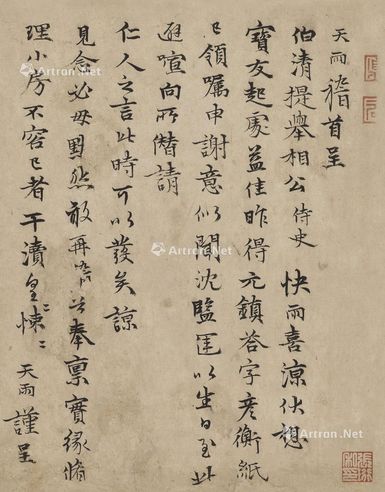 天雨稽首呈
伯清提舉相公侍史 快雨喜涼伏想
寶友起處益佳昨得元鎮答字彥衡紙
已領嘱申謝意似聞沈監匠以生日至此
避喧向所僭請
仁人之言此時可以發矣諒
見念必毋 然敢再 以奉稟實緣脩
理小房不容已者干瀆皇悚〻〻 天雨謹呈
Artron.Net